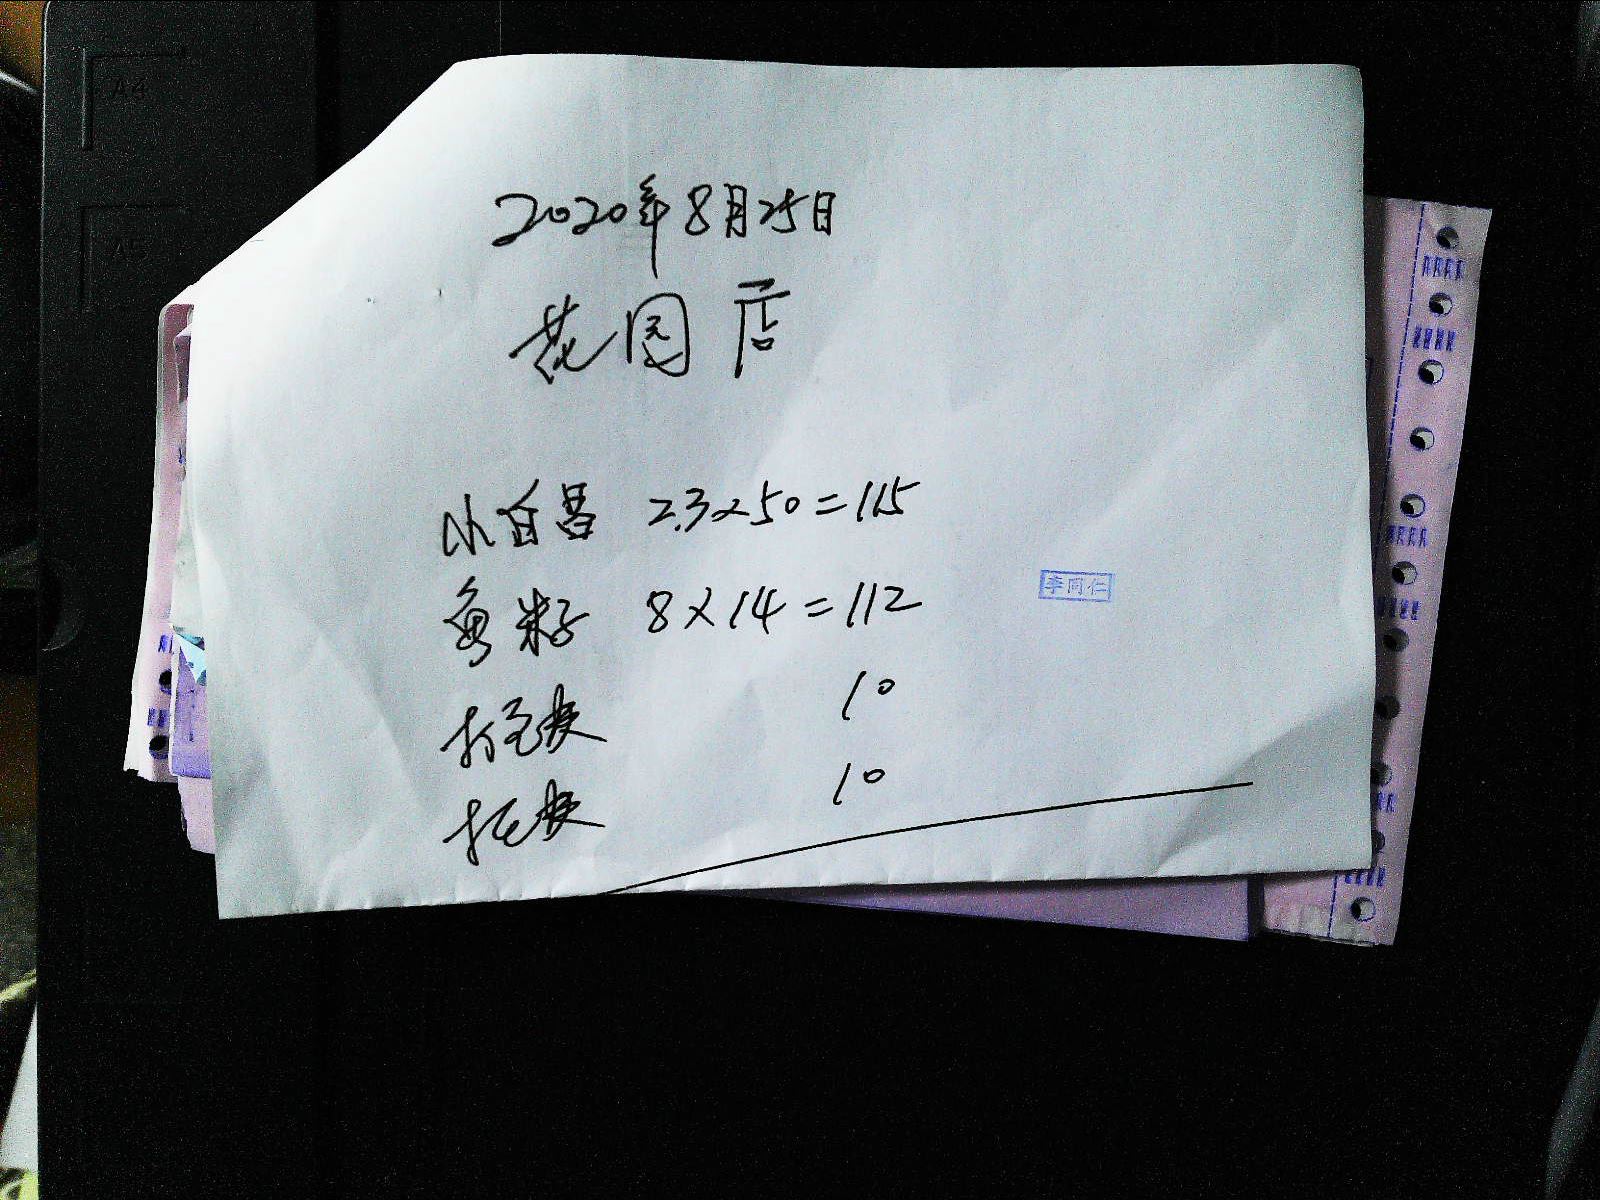 2020年8月25日
花园店
小白昌 2.3×50=115
鱼籽 8×14=112
李同仁
打包费 10
打包费 10
A4
A5